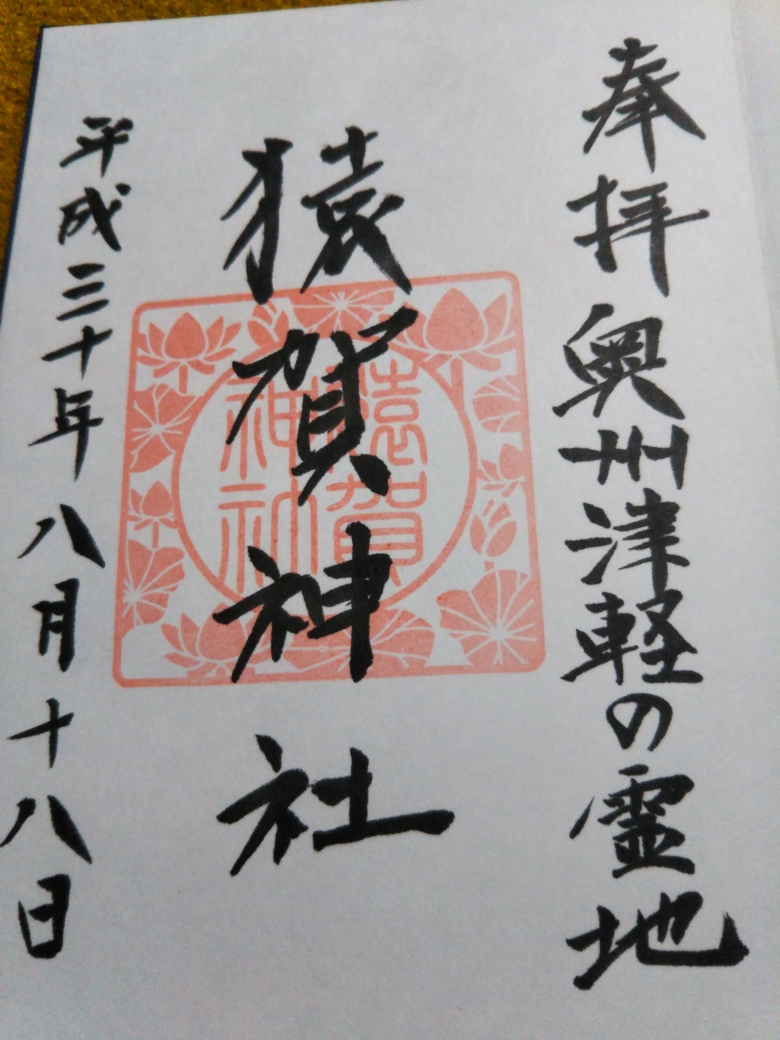 奉拝 奥州津軽の霊地
猿賀神社
猿賀
神社
平成三十年八月十八日